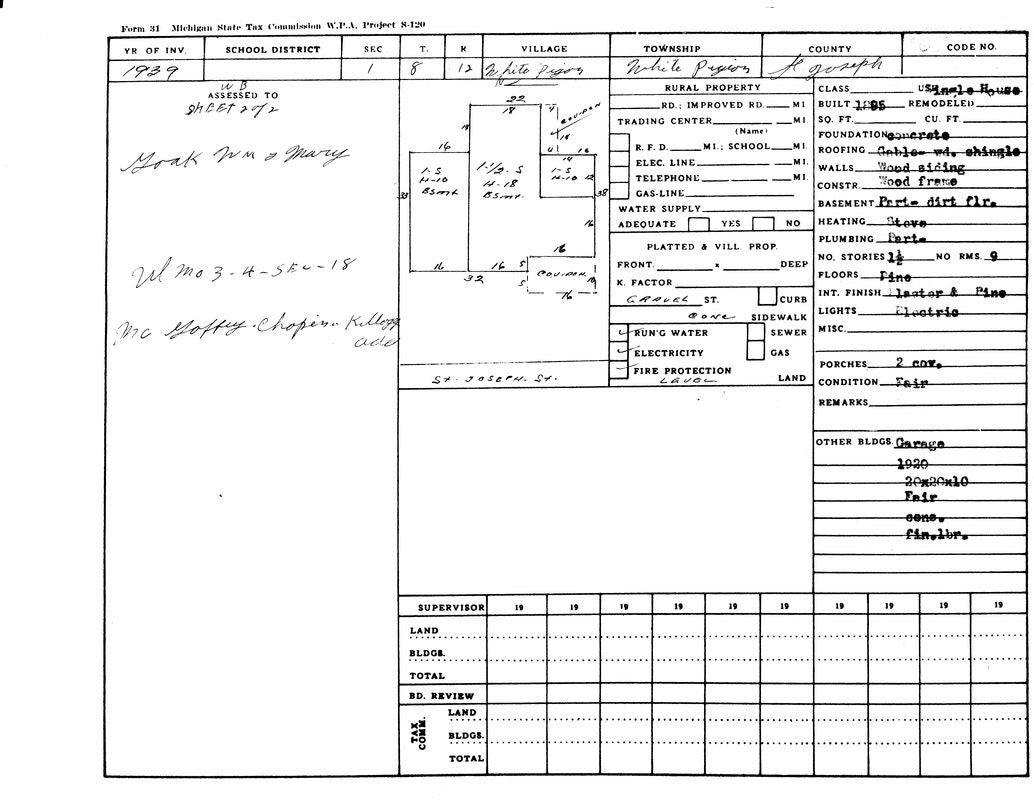 Form 31 Michigan State Tax Commission W.P.A. Project S-120
YR OF INV. SCHOOL DISTRICT SEC T. R VILLAGE TOWNSHIP COUNTY CODE NO.
1939 1 8 12 White Pigeon White Pigeon St Joseph
W B
ASSESSED TO
SHEET 2 of 2
Wm & Mary
3-4-SEC-18
Chapin Kellogg
add
22
18
4
COV. POR.
18
18
4
16
14 16
1-S
H-10
BSMT
1-1/2-S
H-18
BSMT.
1-S
H-10 12
33
38
16
16
16 16 5
COV. POR. 10
32 5
16
ST. JOSEPH. ST.
RURAL PROPERTY
RD.; IMPROVED RD. MI.
TRADING CENTER MI.
(Name)
R. F. D. MI.; SCHOOL MI.
ELEC. LINE MI.
TELEPHONE MI.
GAS-LINE
WATER SUPPLY
ADEQUATE YES NO
PLATTED & VILL PROP.
FRONT. x DEEP
K. FACTOR
GRAVEL ST. CURB
CONC SIDEWALK
RUN'G WATER SEWER
ELECTRICITY GAS
FIRE PROTECTION
LEVEL LAND
CLASS US Single House
BUILT 1895 REMODELED
SQ. FT. CU. FT.
FOUNDATION concrete
ROOFING Gable- wd. shingle
WALLS Wood siding
CONSTR. Wood frame
BASEMENT Part- dirt flr.
HEATING Stove
PLUMBING Part-
NO. STORIES 1½ NO RMS. 9
FLOORS Pine
INT. FINISH Plaster & Pine
LIGHTS Electric
MISC.
PORCHES 2 cov.
CONDITION Fair
REMARKS
OTHER BLDGS. Garage
1920
20x20x10
Fair
conc.
fin.lbr.
SUPERVISOR 19 19 19 19 19 19 19 19 19 19
LAND
BLDGS.
TOTAL
BD. REVIEW
TAX COMM.
LAND
BLDGS.
TOTAL